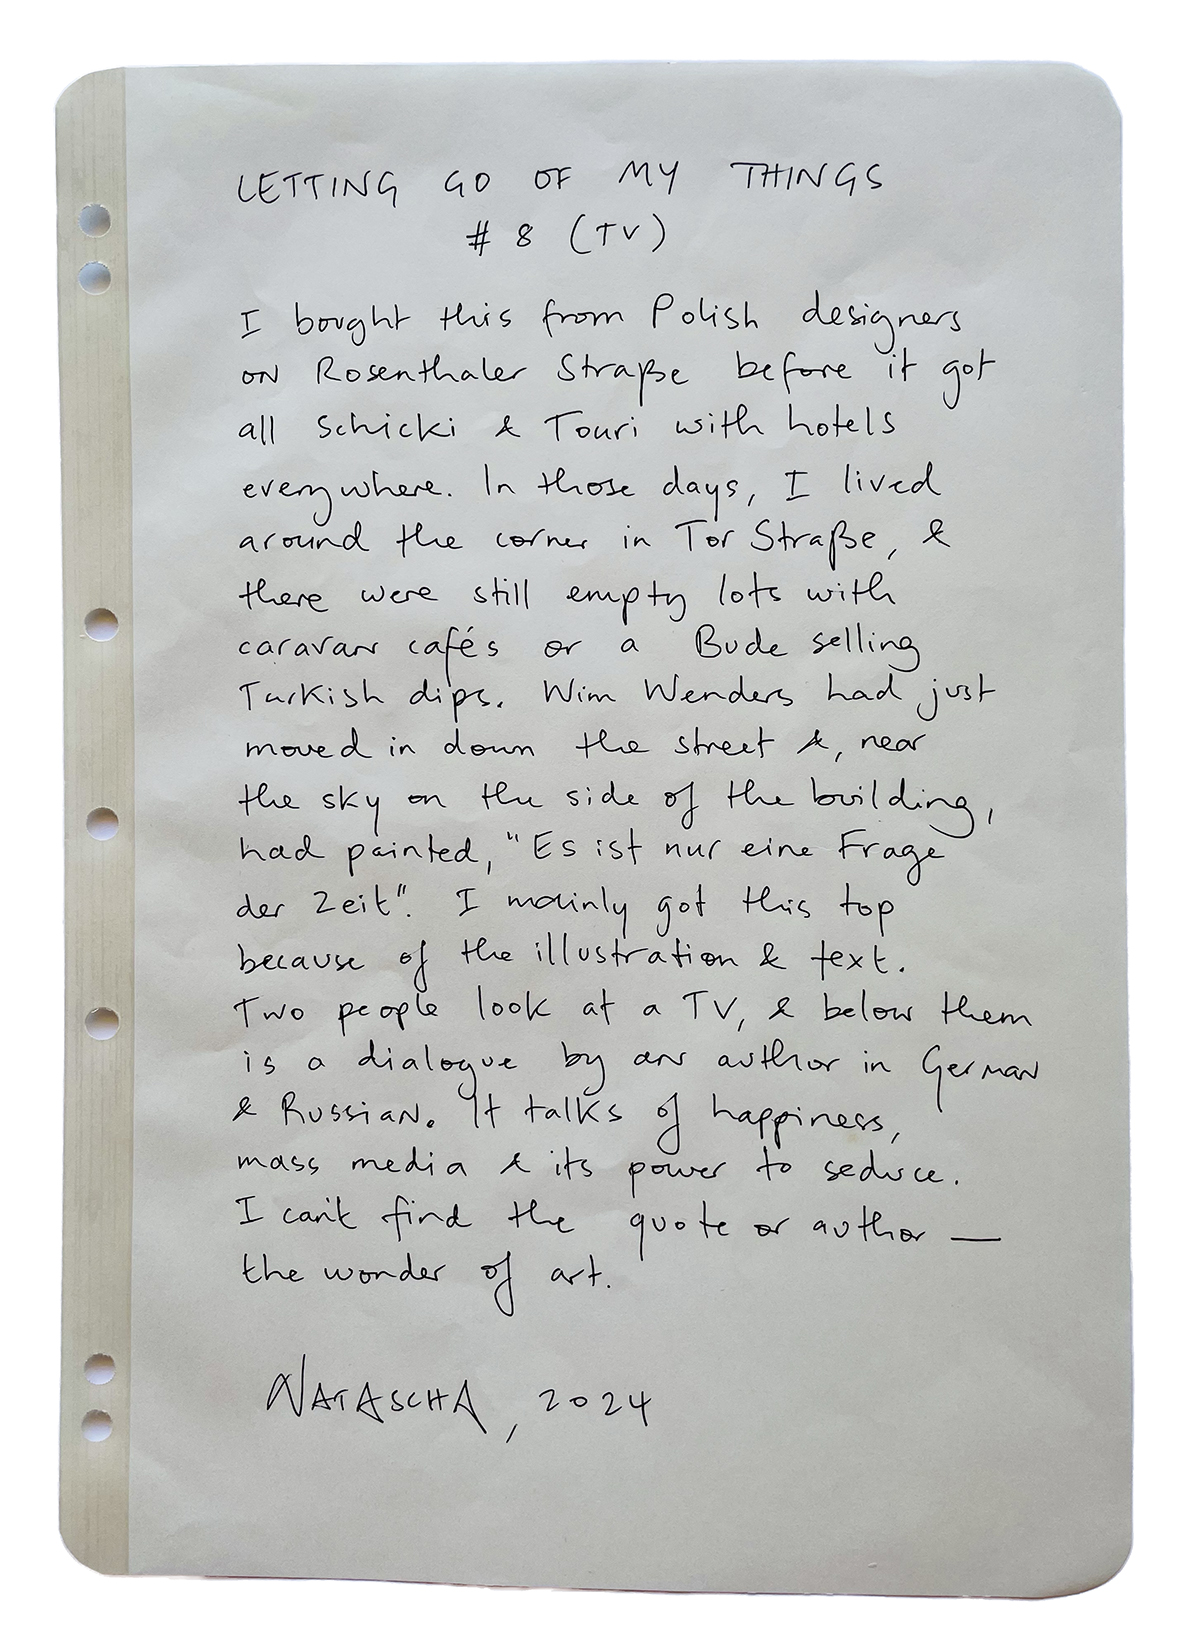 LETTING GO OF MY THINGS
# 8 (TV)
I bought this from Polish designers
on Rosenthaler Straße before it got
all Schicki & Touri with hotels
everywhere. In those days, I lived
around the corner in Tor Straße, &
there were still empty lots with
caravan cafés or a Bude selling
Turkish dips. Wim Wenders had just
moved in down the street &, near
the sky on the side of the building,
had painted, "Es ist nur eine Frage
der Zeit". I mainly got this top
because of the illustration & text.
Two people look at a TV, & below them
is a dialogue by an author in German
& Russian. It talks of happiness,
mass media & its power to seduce.
I can't find the quote or author —
the wonder of art.
NATASCHA, 2024